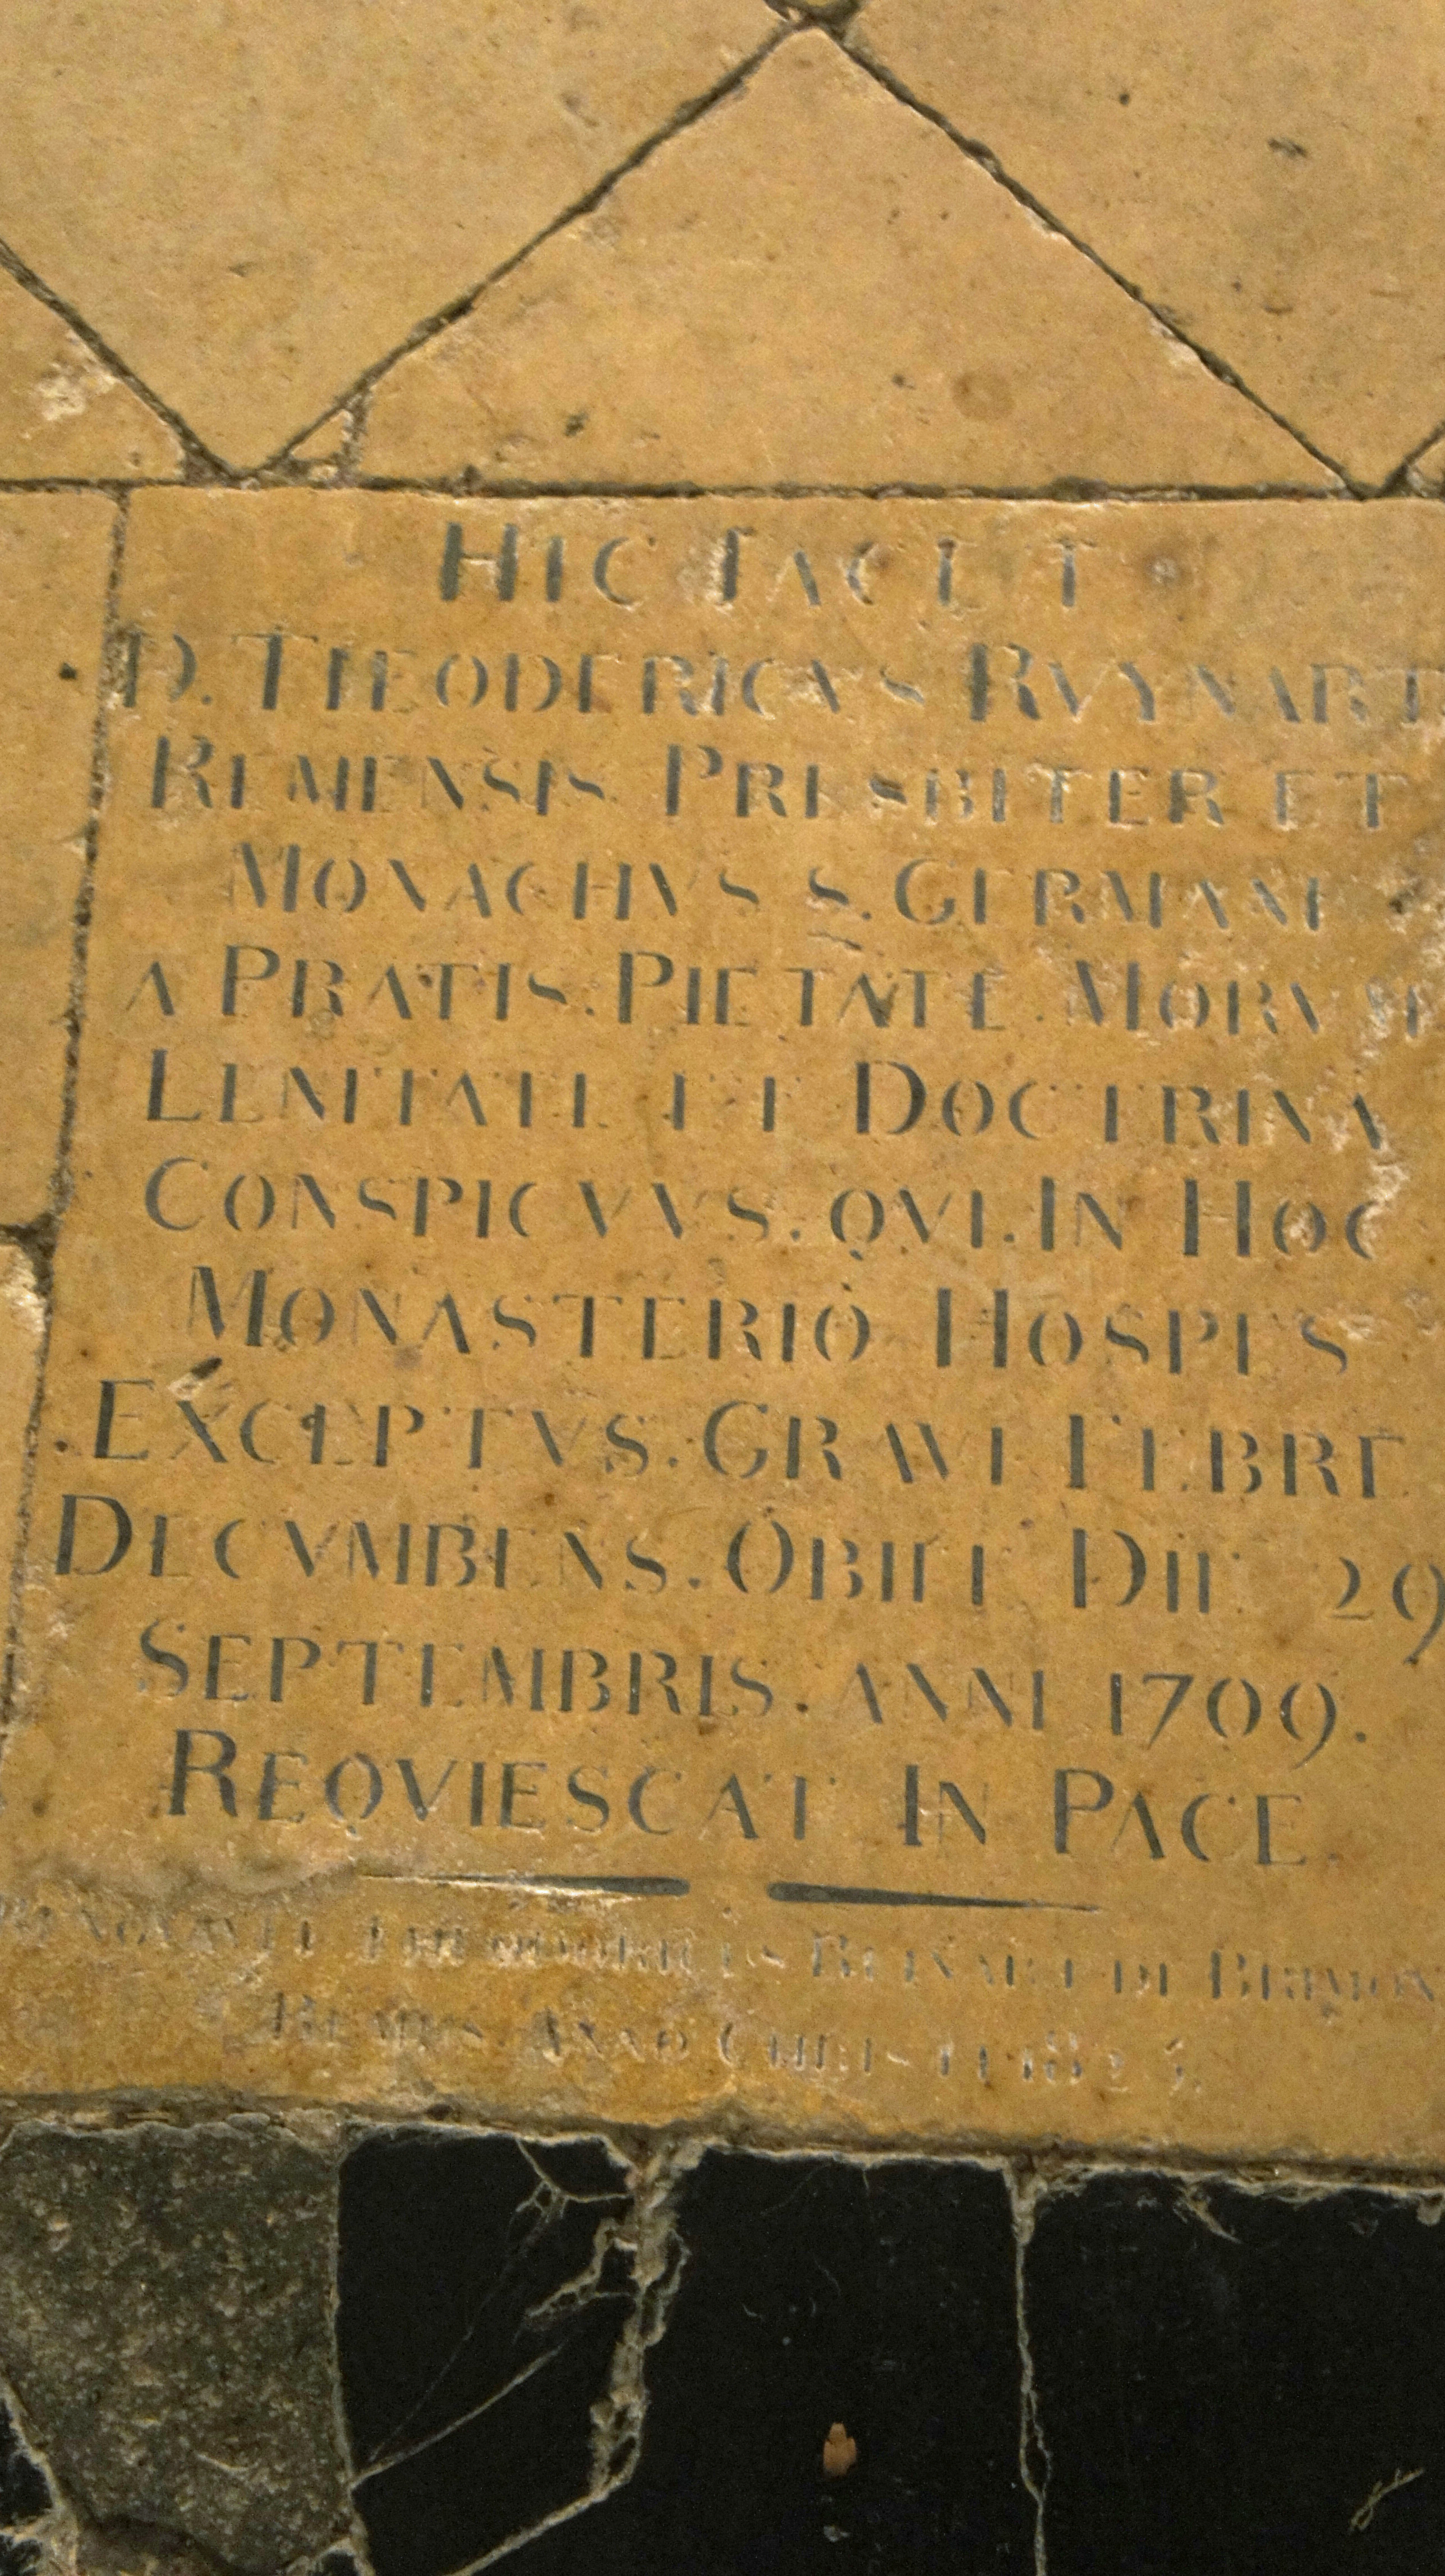 HIC JACET
D. THEODERICVS RVYNART
REMENSIS PRESBITER ET
MONACHVS S. GERMANI
A PRATIS. PIETATE. MORVM
LENITATE ET DOCTRINA
CONSPICVVS. QVI. IN HOC
MONASTERIO HOSPES
EXCEPTVS. GRAVI FEBRE
DECVMBENS. OBIIT DIE 29
SEPTEMBRIS. ANNI 1709.
REQVIESCAT IN PACE.
RENOVAVIT RUINART DE BRIMON
ANNO CHRISTI 182